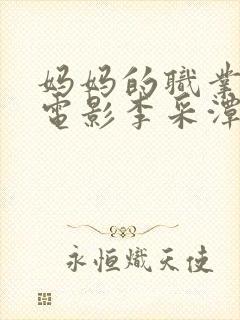 妈妈的職業
電影李采潭
永恒熾天使